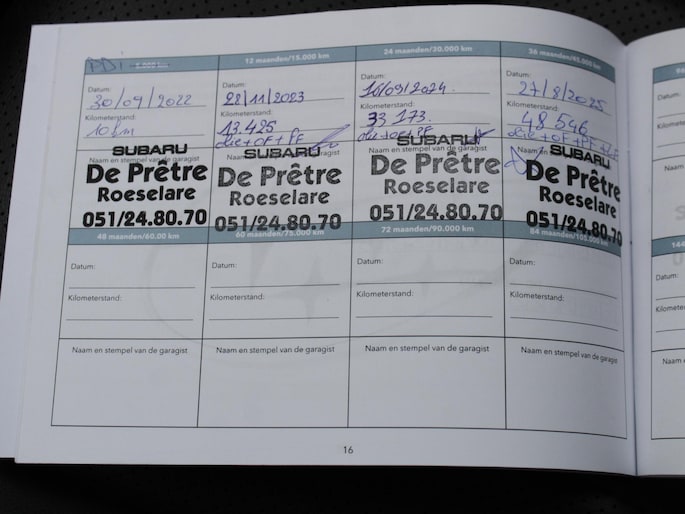 PDI 5.000 km
Datum: 30/09/2022
Kilometerstand:
10 km
Naam en stempel van de garagist
SUBARU
De Prêtre
Roeselare
051/24.80.70
12 maanden/15.000 km
Datum: 28/11/2023
Kilometerstand:
13.425
olie+OF+PF
SUBARU
De Prêtre
Roeselare
051/24.80.70
24 maanden/30.000 km
Datum: 16/09/2024
Kilometerstand:
33 173.
olie+OF+PF
Naam en stempel van de garagist
SUBARU
De Prêtre
Roeselare
051/24.80.70
36 maanden/45.000 km
Datum:
27/8/2025
Kilometerstand:
48 546
olie+OF+PF
Naam
SUBARU
De Prêtre
Roeselare
051/24.80.70
48 maanden/60.00 km
Datum:
Kilometerstand:
Naam en stempel van de garagist
60 maanden/75.000 km
Datum:
Kilometerstand:
Naam en stempel van de garagist
72 maanden/90.000 km
Datum:
Kilometerstand:
Naam en stempel van de garagist
84 maanden/105.000 km
Datum:
Kilometerstand:
Naam en stempel van de garagist
16
96
Datum:
144
Datum:
Kilomete
Naam